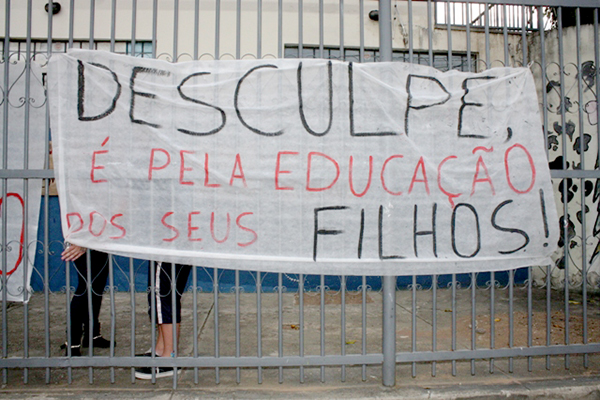 DESCULPE,
É PELA EDUCAÇÃO
DOS SEUS FILHOS!